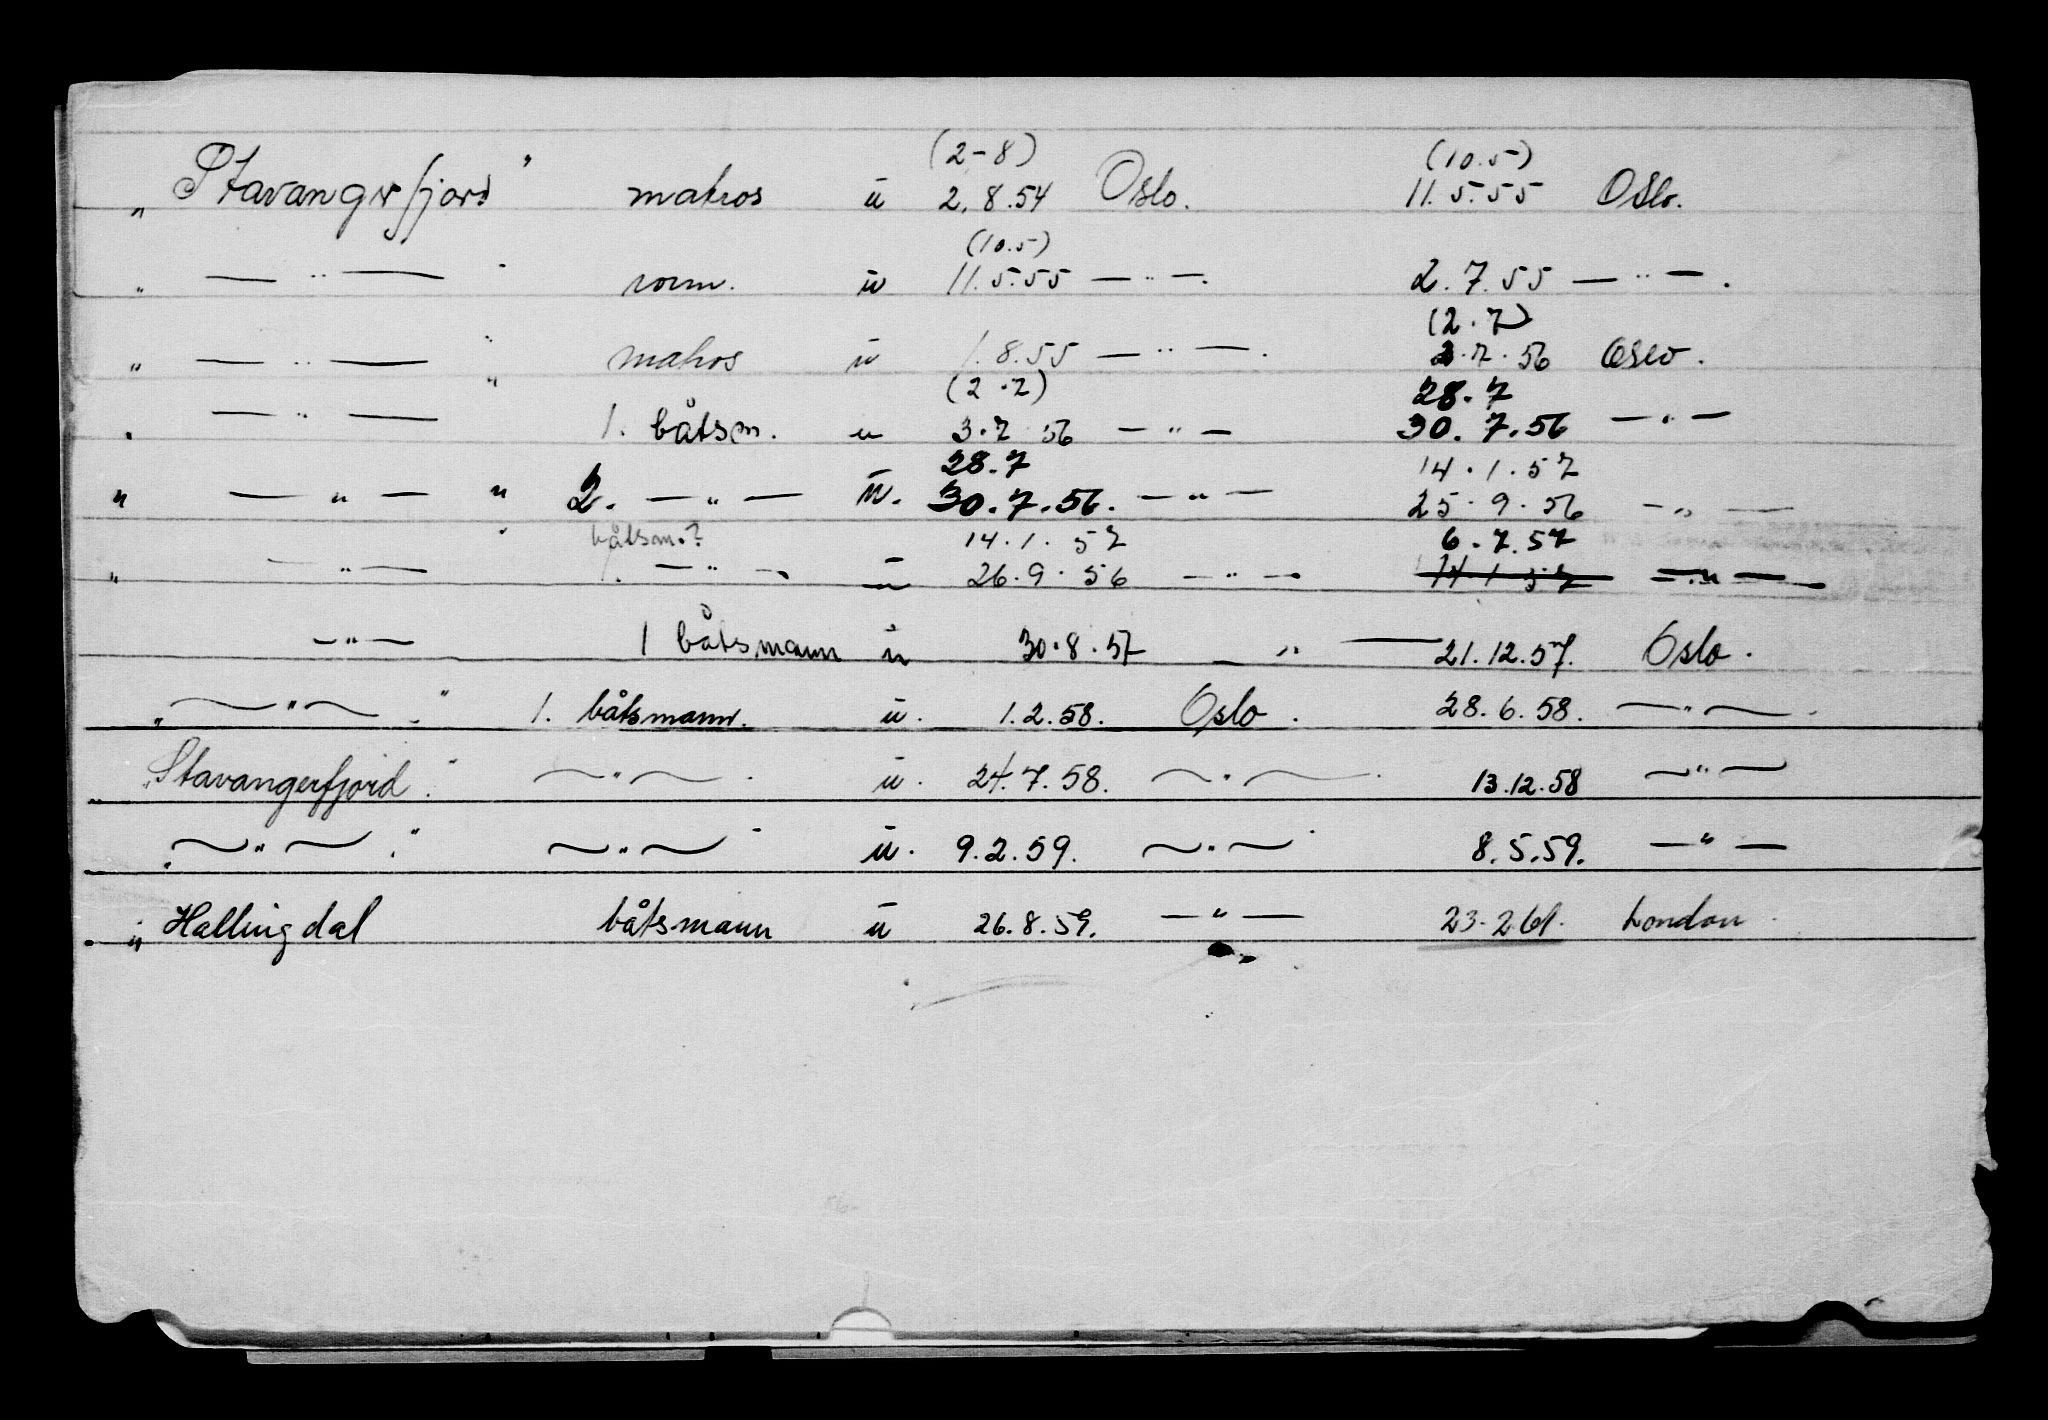 (2-8) (10.5)
„ Stavangerfjord" matros u 2.8.54 Oslo. 11.5.55 Oslo.
(10.5)
„ — „ — " rorm. u 11.5.55 — „ —. 2.7.55 — „ —.
(2.7)
„ — „ — " matros u 1.8.55 — „ —. 3.7.56 Oslo.
(2.7) 28.7
„ — „ — " 1. båtsm. u 3.7.56 — „ — 30.7.56 — „ —
28.7 14.1.57
„ — „ — " 2. — „ — u. 30.7.56. — „ — 25.9.56 — „ —
båtsm.? 14.1.57 6.7.57
„ — „ — " 1. — „ —. u 26.9.56 — „ —. 14.1.57 — „ —
— „ — 1 båtsmann u 30.8.57 — „ — 21.12.57. Oslo.
„ — „ — " 1. båtsmann. u. 1.2.58. Oslo. 28.6.58. — „ —.
„ Stavangerfjord." — „ —. u. 24.7.58. — „ —. 13.12.58 — „ —
„ — „ — ." — „ — u. 9.2.59. — „ — 8.5.59. — „ —
„ Hallingdal båtsmann u 26.8.59. — „ — 23.2.61. London.